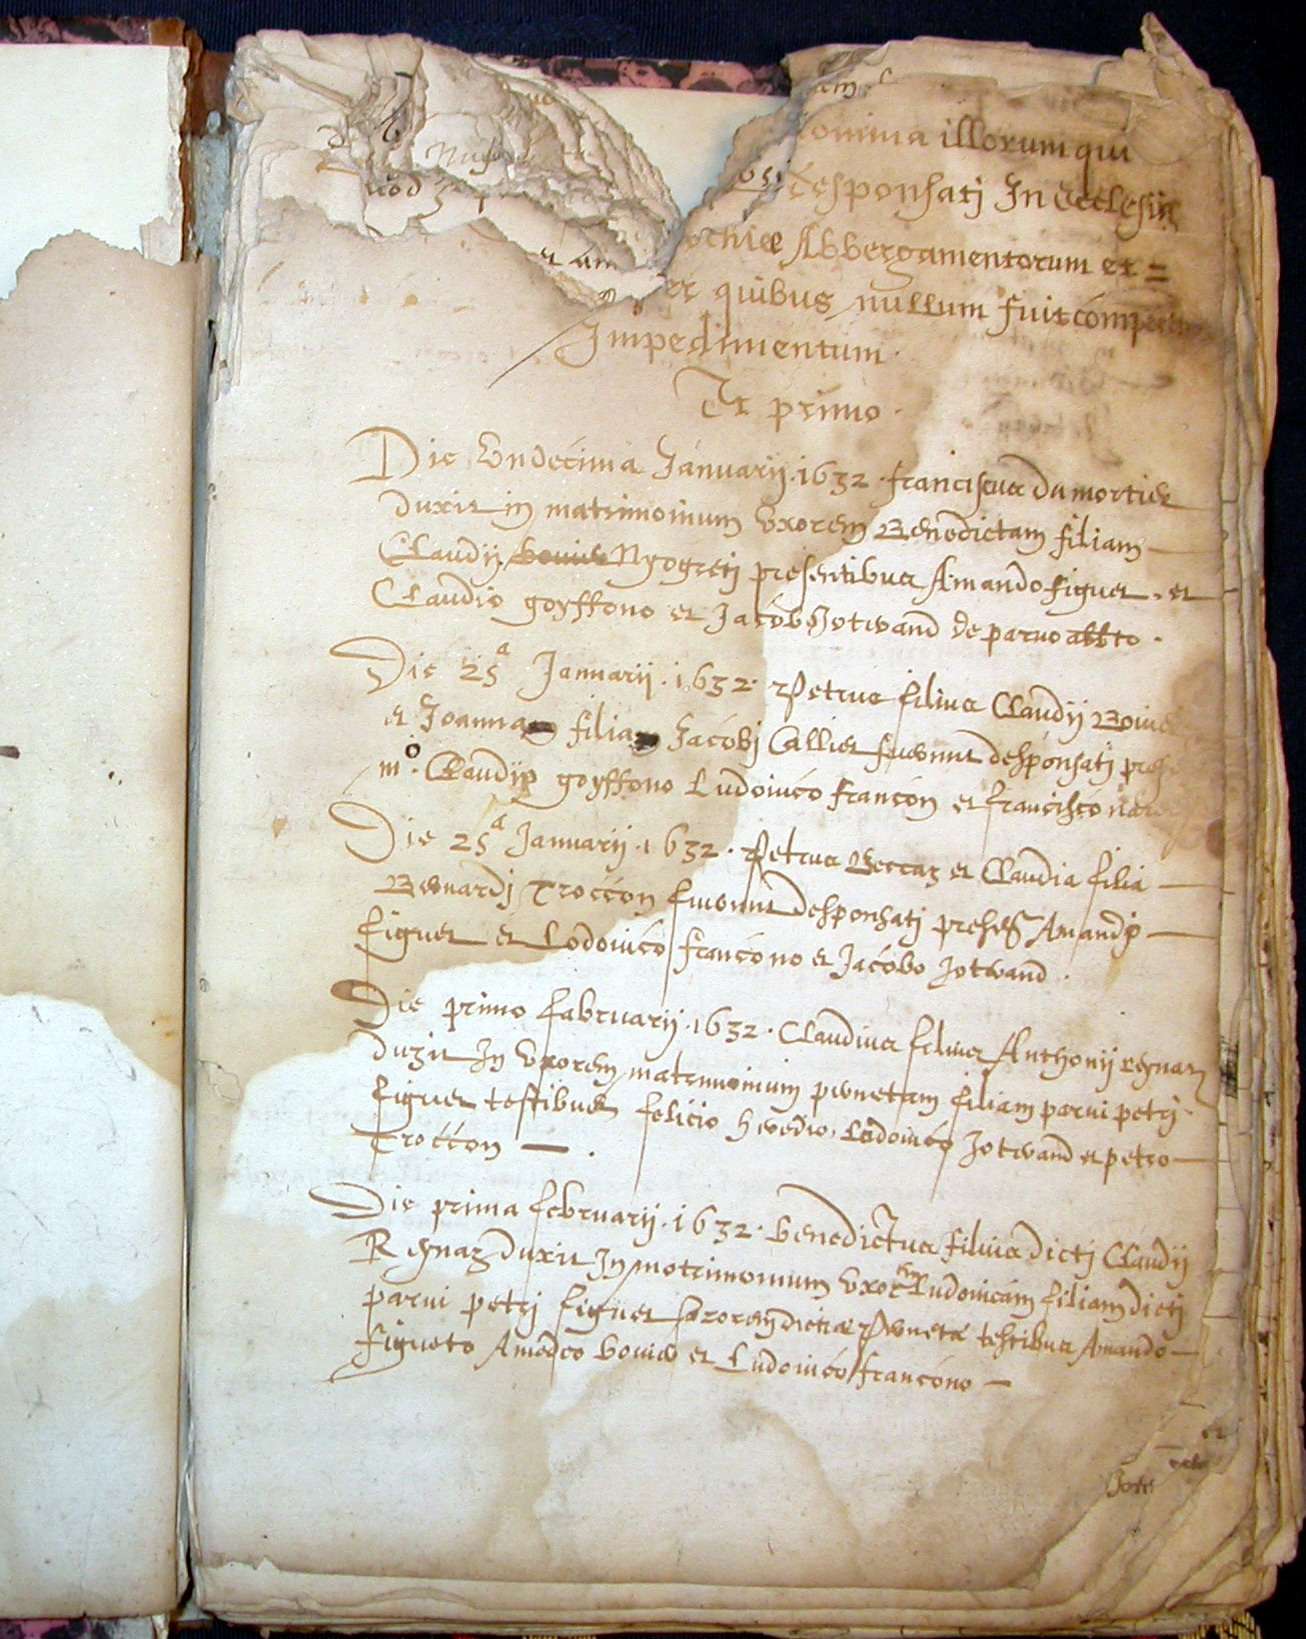 illorum qui
desponsati In Ecclesia
Abbergamentorum et =
quibus nullum fuit
Impedimentum.
Et primo.
Die Undecima Januarij. 1632. franciscus du mortier
duxit in matrimonium Uxorem Benedictam filiam
Claudij Nyogreti presentibus Amando figuet, et
Claudio goyffono et Jacobo Jotuand de paruo abbto.
Die 25ª Januarij. 1632. Petrus filius Claudij
et Joanna filia Jacobi Callier fuerunt desponsati
mº. Claudio goyffono Ludouico francon et francisco
Die 25ª Januarij. 1632. Petrus Beccaz et Claudia filia
Bernardj Troccon fuerunt desponsatj Amando
figuet et Lodouico francono et Jacobo Jotuand.
Die primo februarij. 1632. Claudius filius Anthonij regnaz
duxit In Uxorem matrimonium pernetam filiam parui petrj
figuet testibus felicio Ludouico Jotuand et petro
Troccon
Die prima februarij. 1632. benedictus filius dictj Claudij
Regnaz duxit In motrimonium Uxorem Ludouicam filiam dictj
parui petrj figuet sororem dictæ Pernetæ testibus Amando
figueto Amedeo bouier et Ludouico francono